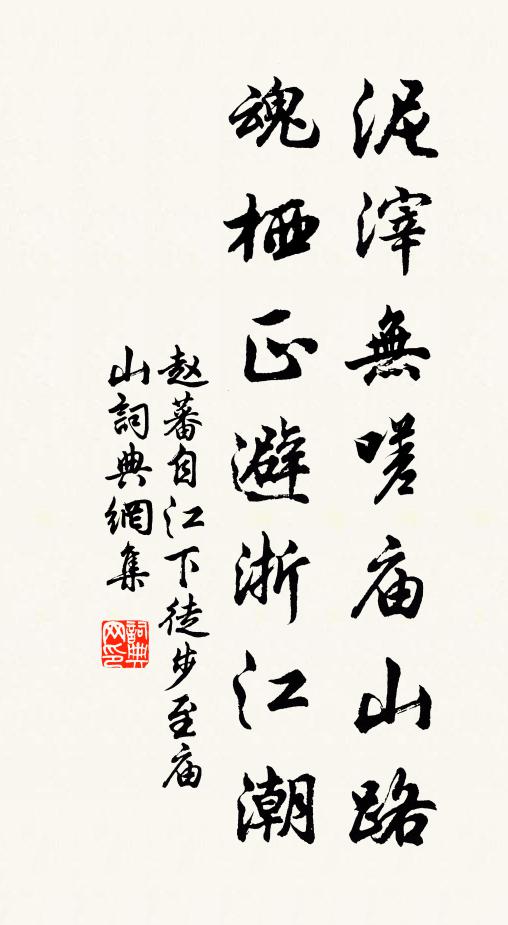 泥滓無嗟庙山路
魂栖正避浙江潮
赵蕃自江下徒步至庙
山詞典網集
詞典
网印